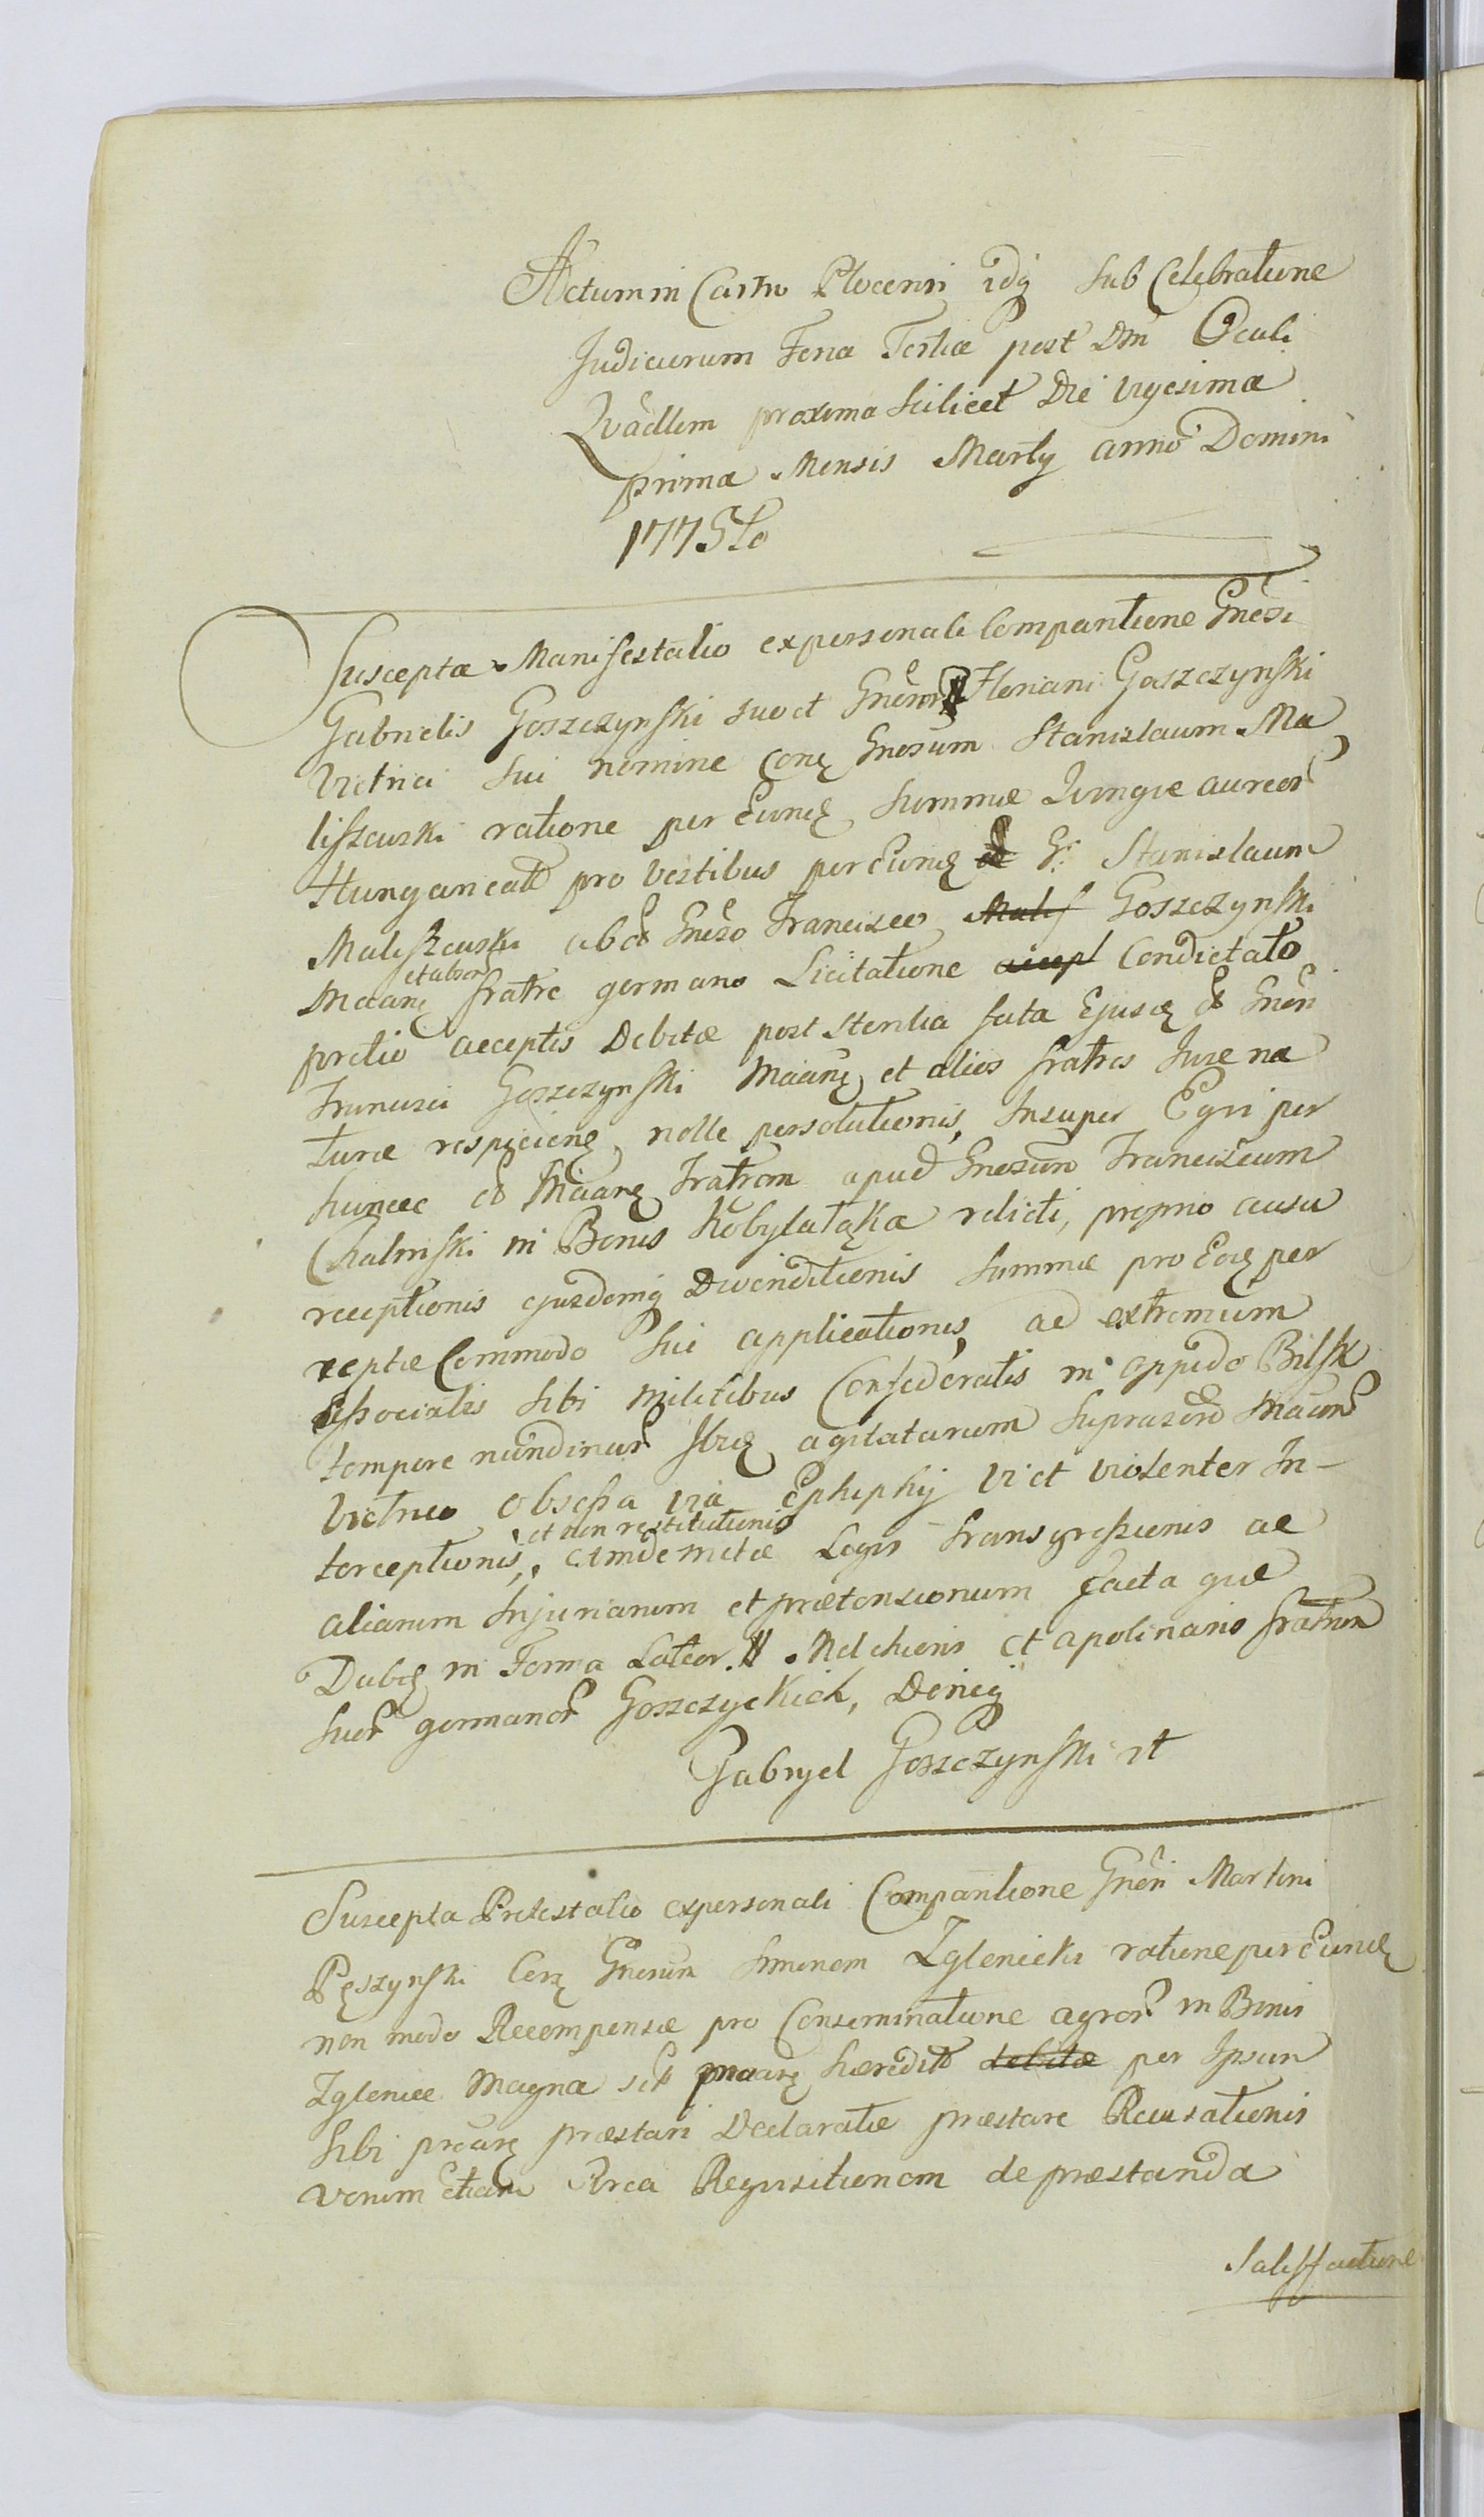 Actum in Castro Plocensi idq sub Celebratione
Judiciorum Feria Tertia post Dm Oculi
Qvadlem proxima scilicet Die vigesima
prima Mensis Martij anno Domini
1775to
Suscepta Manifestatio ex personali Comparitione Gnësi
Gabrielis Goszczynski suo et Gneror Floriani Goszczynski
Victrici sui nomine Conq Gnosum Stanislaum Ma
liszewski ratione per Eundq summæ Qvinque aureor
Hungarical pro vestibus per Eundq G: Stanislaum
Maliszewski ab od Gnëso Francisco Malis Goszczynski
et absor
Maanq fratre germano Licitatione accept Condictato
pretio acceptis Debitæ post sterilia fata Ejusdq od Gnën
Francisci Goszczynski Maanq et alios fratres Jure na
turæ respicienq, nolle persolutionis, Insuper Eqvi per
huncce od Maanq Fratrem apud Gnesum Franciscum
Chalinski in Bonis Kobylałąka relicti, proprio ausu
receptionis ejusdemq Divenditionis summæ pro Eodq per
reptæ Commodo sui applicationis, ac extremum
associatis sibi militibus Confederatis in oppido Bilsk
tempore nundinar ibidq agitatarum suprascrio Maanr
Victrico obsessa via Ephiphij vi et violenter In-
et non restitutionis
terceptionis, eimdemetæ Legis transgressionis ac
aliarum Injuriarum et prætensionum facta quæ
Dabq in Forma Latior. Melchioris et apolinaris fratrum
suor germanor Goszczyckich, Deniq
Gabryel Goszczynski rt
Suscepta Protestatio ex personali Comparitione Gnën Martini
Pęszynski Conq Gnosum Simonem Zglenicki ratione per Eundq
non modo Recompensæ pro Conseminatione agror in Bonis
Zglenice Magna sitt pmaanq hæredit debitæ per Ipsum
sibi præanq præstari Declaratæ præstare Recusationis
verum etiam Circa Reqvisitionem de præstanda
Satisfactione